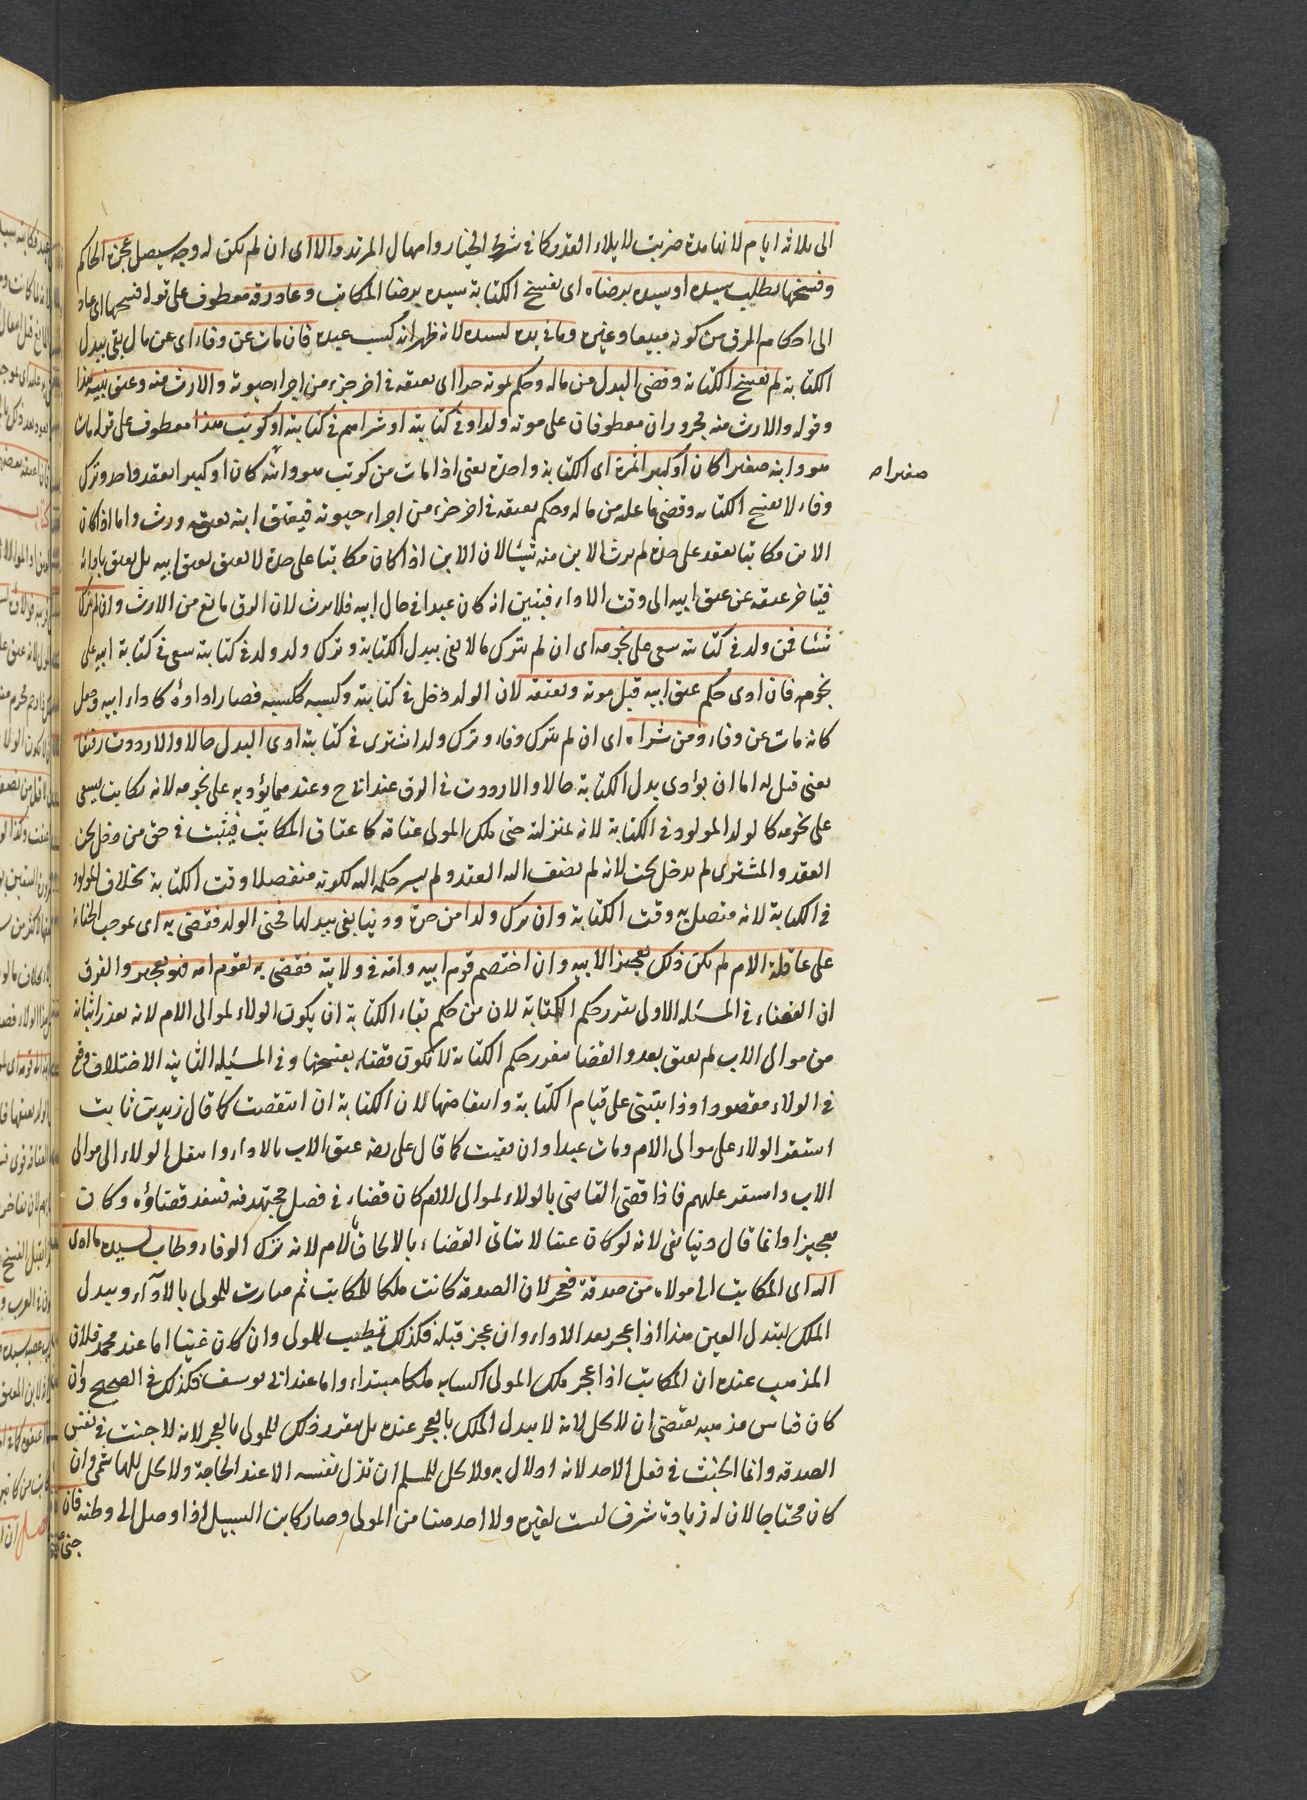 الى ثلاثة ايام لانها مدة ضربت لابلاء العذر كما في شرط الخيار وامهال المرتد والا اى ان لم يكن له وجه سيصل عجزه الحاكم
وفسخها بطلب سيده او سيده برضاه اى يفسخ الكتابة سيده برضا المكاتب وعاد رقه معطوف على قوله فسخها اى عاد
الى احكام الرق من كونه مبيعا وغيره وما في يده لسيده لانه ظهر انه كسب عبده فان مات عن وفاء اى عن مال يفى ببدل
الكتابة لم تفسخ الكتابة وقضى البدل من ماله وحكم بموته حرا اى بعتقه في اخر جزء من اجزاء حيوته والارث منه وعتق بنيه هذا
وقوله والارث منه مجروران معطوفان على موته ولدوا في كتابته او شراهم في كتابته او كوتب هذا معطوف على قوله مات
هو وابنه صغيرا كان او كبيرا بمرة اى الكتابة واحدة يعنى اذا مات من كوتب هو وابنه كان او كبيرا بعقد واحد وترك
صغيرا صح
وفاء لا يفسخ الكتابه وقضى ما عليه من ماله وحكم بعتقه في اخر جزء من اجزاء حيوته فيعتق ابنه بعتقه ورث واما اذا كان
الابن مكاتبا بعقد على حدة لم يرث الابن منه شيئا لان الابن اذا كان مكاتبا على حدة لا يعتق بعتق ابيه بل يعتق بادائه
فيتاخر عتقه عن عتق ابيه الى وقت الاداء فتبين انه كان عبدا في حال ابيه فلا يرث لان الرق مانع من الارث وان لم يترك
شيئا فمن ولد في كتابته سعى على نجومه اى ان لم يترك مالا يفى ببدل الكتابة وترك ولدا ولد في كتابته سعى في كتابة ابيه على
نجومه فان ادى حكم عتق ابيه قبل موته وبعتقه لان الولد دخل في كتابته وكسبه ككسبه فصار اداؤه كاداء ابيه وجعل
كانه مات عن وفاء ومن شراه اى ان لم يترك وفاء وترك ولدا اشترى في كتابته ادى البدل حالا والا رددت رقيقا
يعنى قيل له اما ان يؤدى بدل الكتابة حالا والا رددت في الرق عند ابي ح وعندهما يؤديه على نجومه لانه تكاتب يسعى
على نجومه كالولد المولود في الكتابة لانه بمنزلته حتى ملك المولى عتاقه كاعتاق المكاتب فيثبت في حق من دخل تحت
العقد والمشترى لم يدخل تحته لانه لم يضف اليه العقد ولم يسر حكمه اليه لكونه منفصلا وقت الكتابة بخلاف المولود
في الكتابة لانه متصل به وقت الكتابة وان ترك ولدا من حرة ودينا يفى ببدلها فجنى الولد فقضى به اى بموجب الجناية
على عاقلة الام لم يكن ذلك تعجيزا لابيه وان اختصم قوم ابيه وامه في ولايه فقضى به لقوم امه فهو تعجيز والفرق
ان القضاء في المسئله الاولى يقرر حكم الكتابة لان من حكم بقاء الكتابة ان يكون الولاء لموالى الام لانه تعذر اثباته
من موالى الاب لم يعتق بعد والقضا بتقرر حكم الكتابة لا تكون قضاء بفسخها وفي المسئله الثانيه الاختلاف وقع
في الولاء مقصودا وذا يبتنى على قيام الكتابة وانتقاضها لان الكتابة ان انتقضت كما قال زيد بن ثابت
استقر الولاء على موالى الام ومات عبدا وان بقيت كما قال على رضه عتق الاب بالاداء وانتقل الولاء الى موالى
الاب واستقر عليهم فاذا قضى القاضى بالولاء لموالى الام كان قضاء في فصل مجتهد فيه فنفذ قضاؤه وكان
تعجيزا وانما قال دينا يفى لانه لو كان عينا لا يتاتى القضاء بالالحاق بالام لانه ترك الوفاء وطاب لسيده ما ادى
اليه اى المكاتب الى مولاه من صدقة فعجز لان الصدقه كانت ملكا للمكاتب ثم صارت للمولى بالاداء وتبدل
الملك كتبدل العين هذا اذا عجز بعد الاداء وان عجز قبله فكذلك تطيب للمولى وان كان غنيا اما عند محمد فلان
المذهب عنده ان المكاتب اذا عجز ملك المولى اكسابه ملكا مبتداء واما عند ابي يوسف فكذلك في الصحيح وان
كان قياس مذهبه يقتضى ان لا يحل لانه لا يبدل الملك بالعجز عنده بل يتقرر ذلك للمولى بالعجز لانه لا خبث في نفس
الصدقه وانما الخبث في فعل الاخذ لانه اذلال به ولا يحل للمسلم ان يذل نفسه الا عند الحاجة ولا يحل للهاشمى وان
كان محتاجا لان له زيادة شرف ليست لغيره ولا اخذ هنا من المولى وصار كابن السبيل اذا وصل الى وطنه فان
جنى عبد